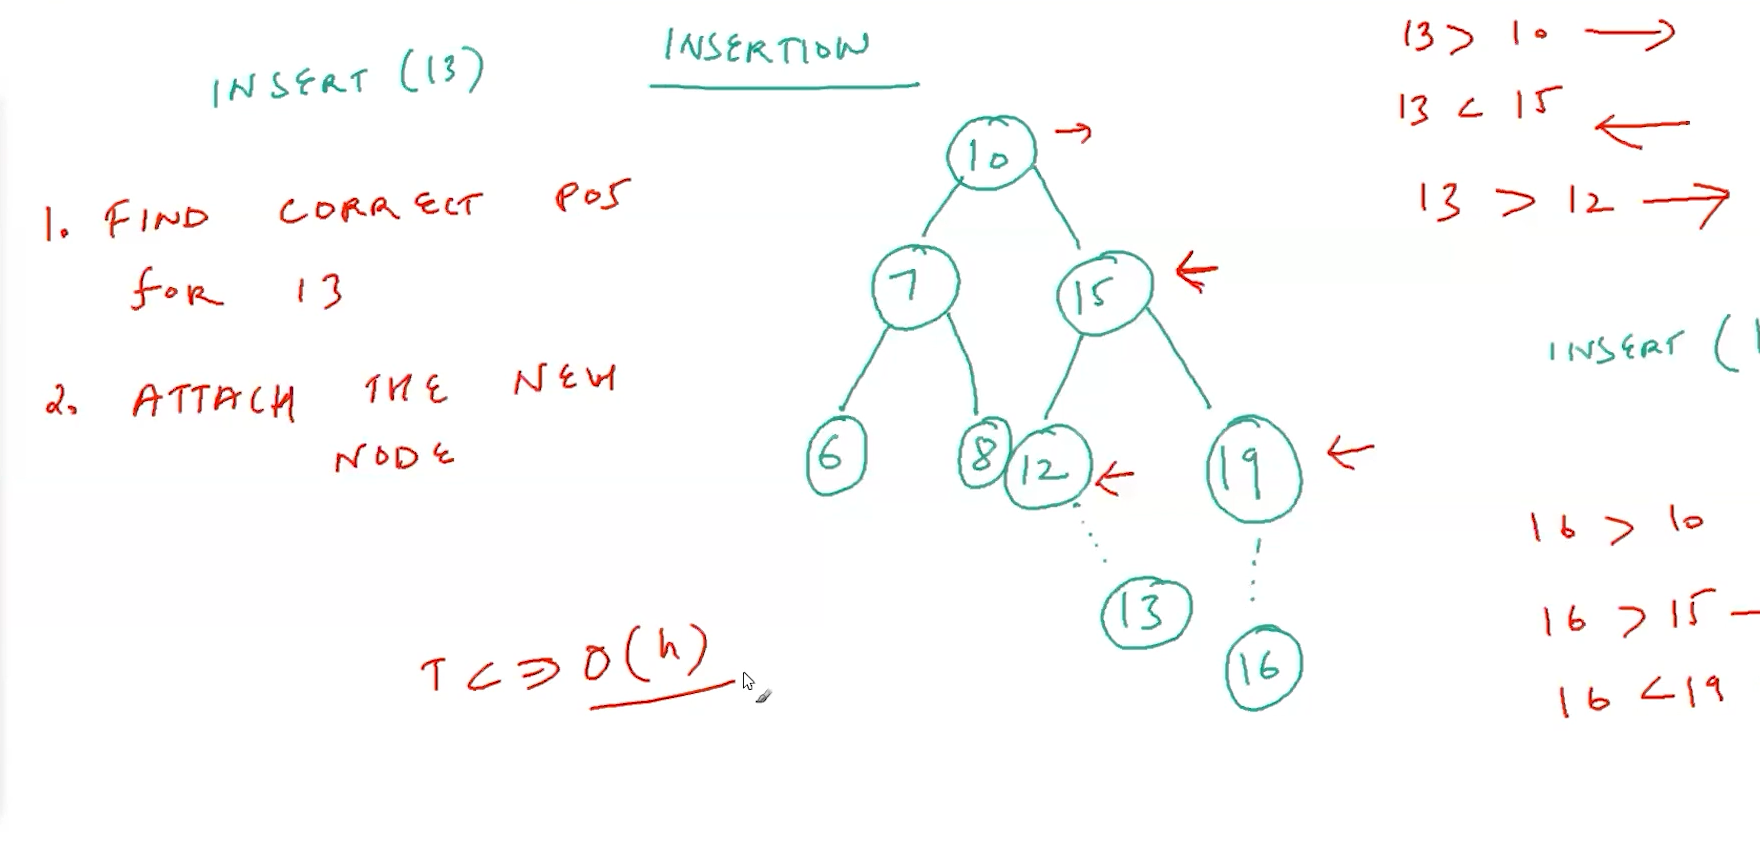 INSERTION
INSERT (13)
1. FIND CORRECT POS
for 13
2. ATTACH THE NEW
NODE
TC => O(h)
10
7
15
6
8
12
19
13
16
13 > 10 →
13 < 15 ←
13 > 12 →
INSERT (1
16 > 10
16 > 15 –
16 < 19